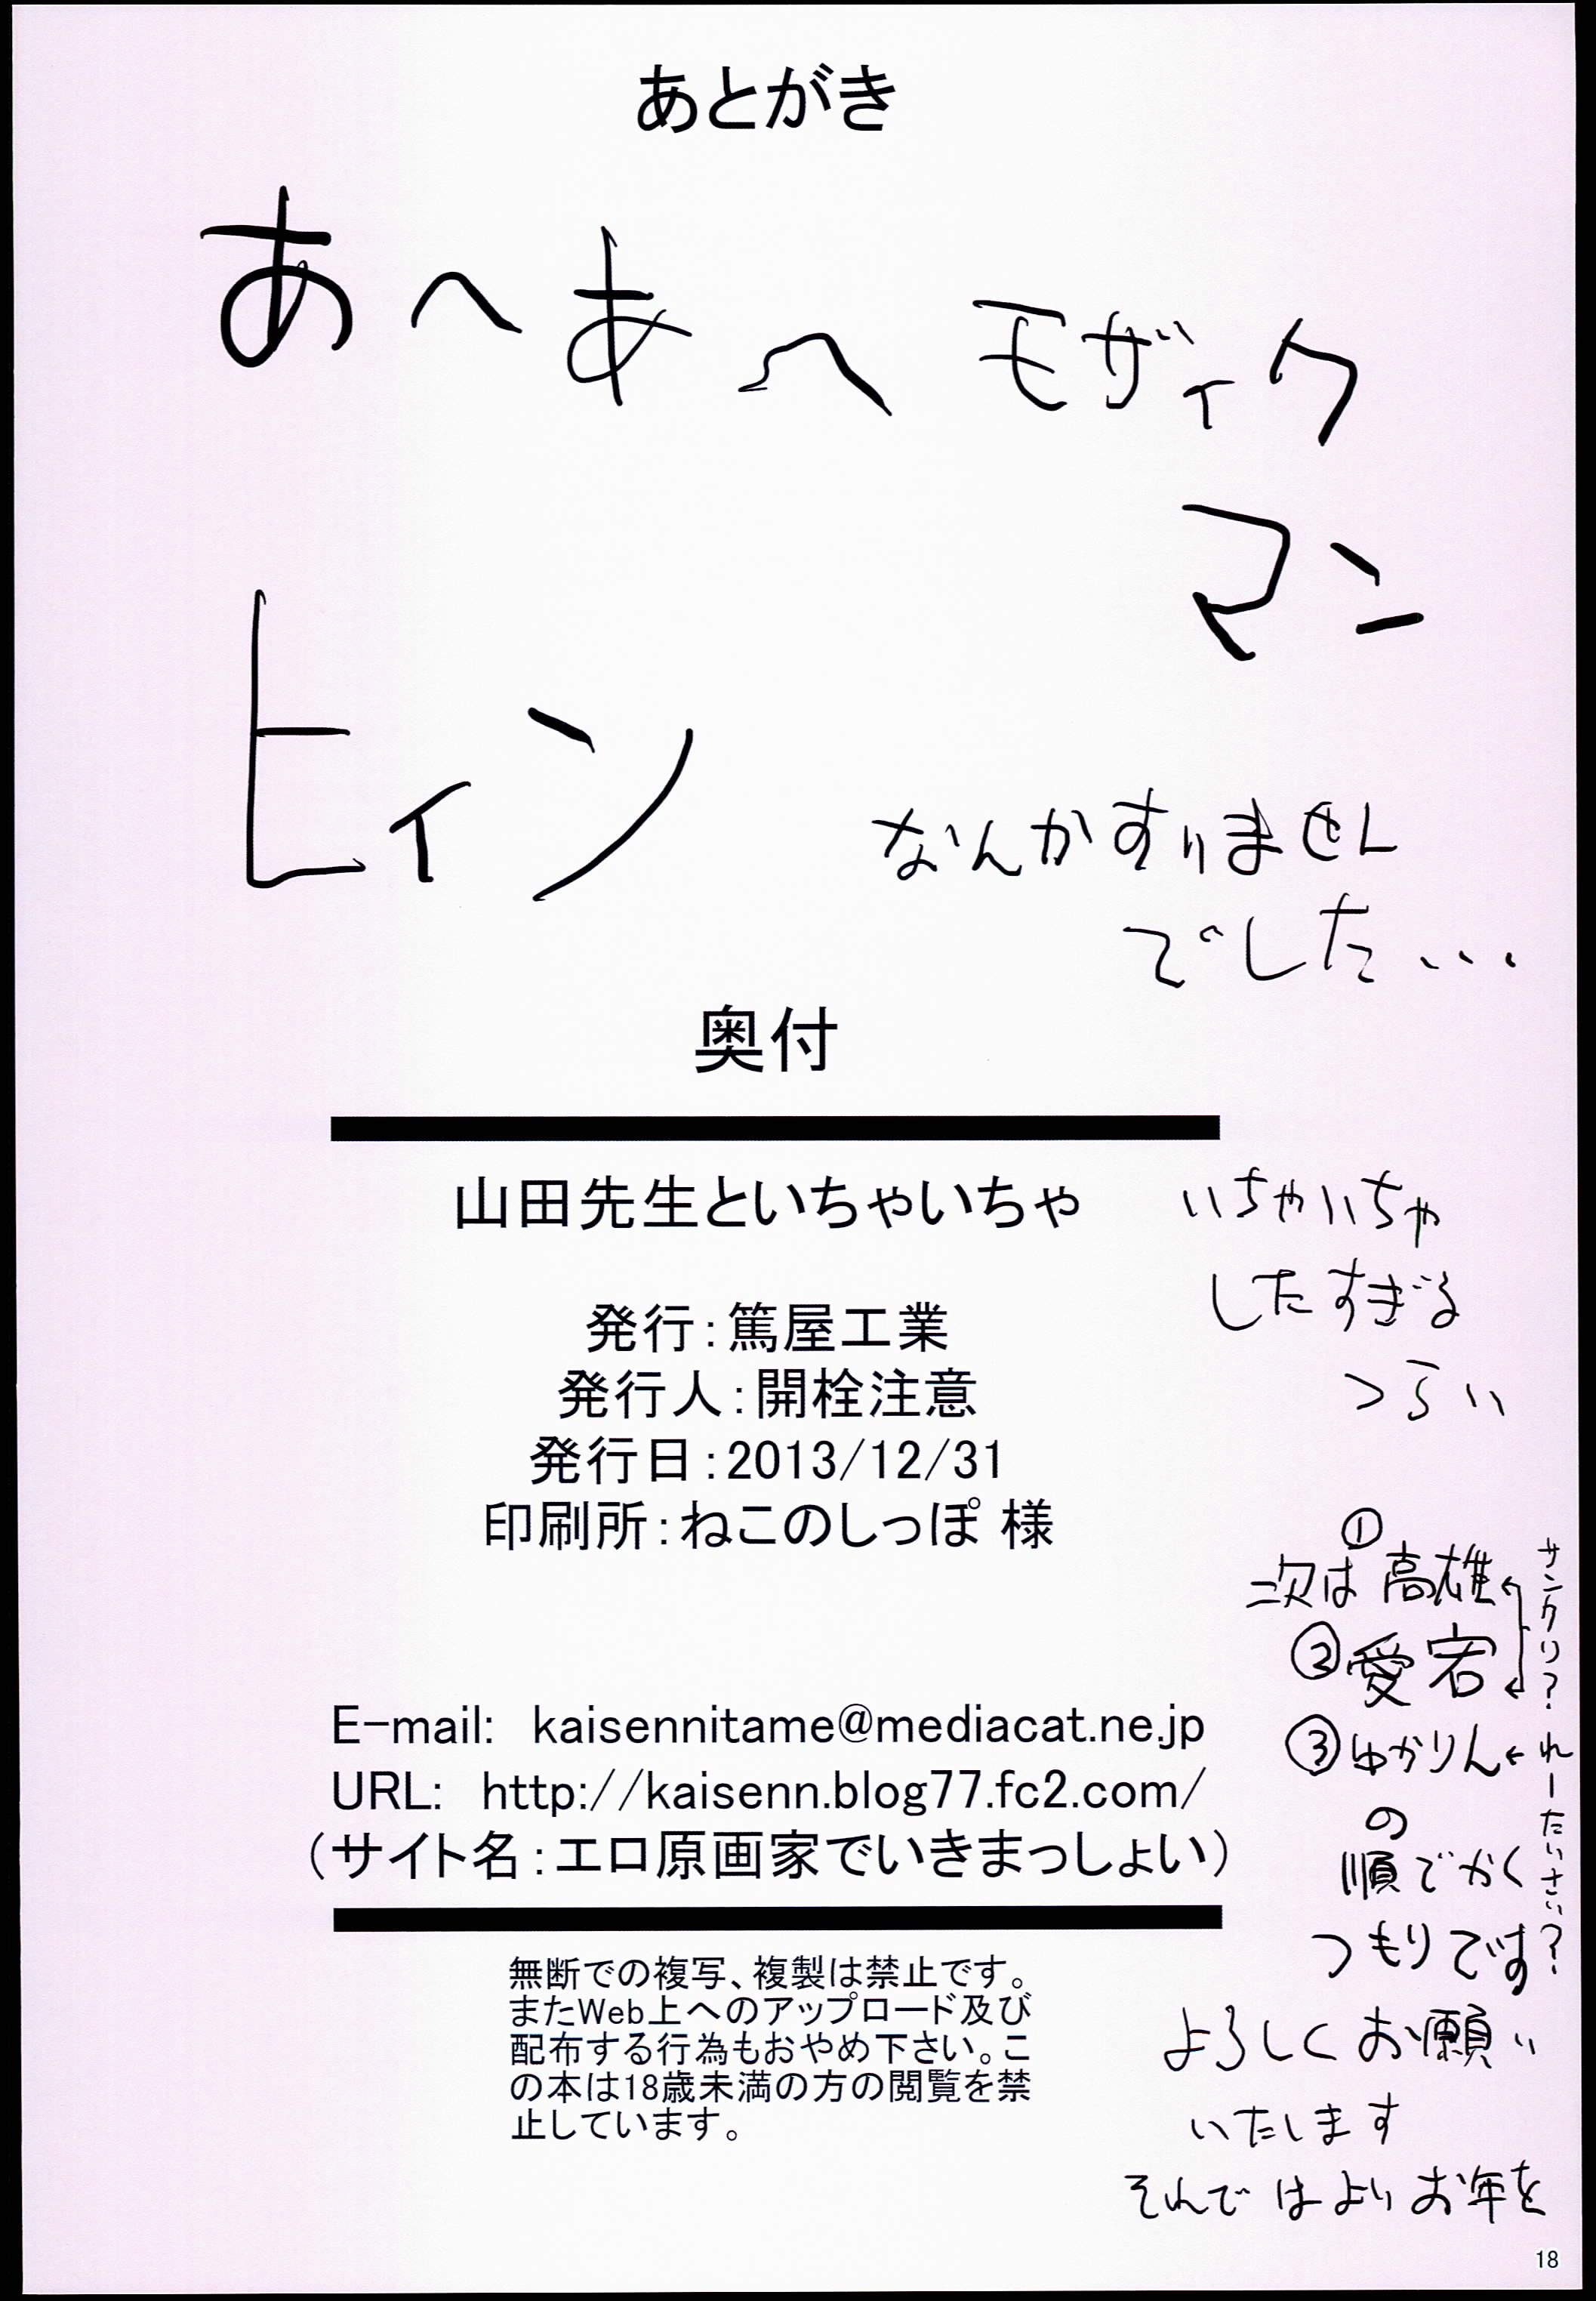 あとがき
あへあへ モザイク
マン
ヒィン
なんかすいません
でした...
奥付
山田先生といちゃいちゃ
発行：篤屋工業
発行人：開栓注意
発行日：2013/12/31
印刷所：ねこのしっぽ 様
E-mail: kaisennitame@mediacat.ne.jp
URL: http://kaisenn.blog77.fc2.com/
（サイト名：エロ原画家でいきまっしょい）
無断での複写、複製は禁止です。
またWeb上へのアップロード及び
配布する行為もおやめ下さい。こ
の本は18歳未満の方の閲覧を禁
止しています。
いちゃいちゃ
したすぎる
つらい
次は ①高雄
②愛宕
③ゆかりん
の
順でかく
つもりです
サンクリ？
れーたいさい？
よろしくお願い
いたします
それではよいお年を
18